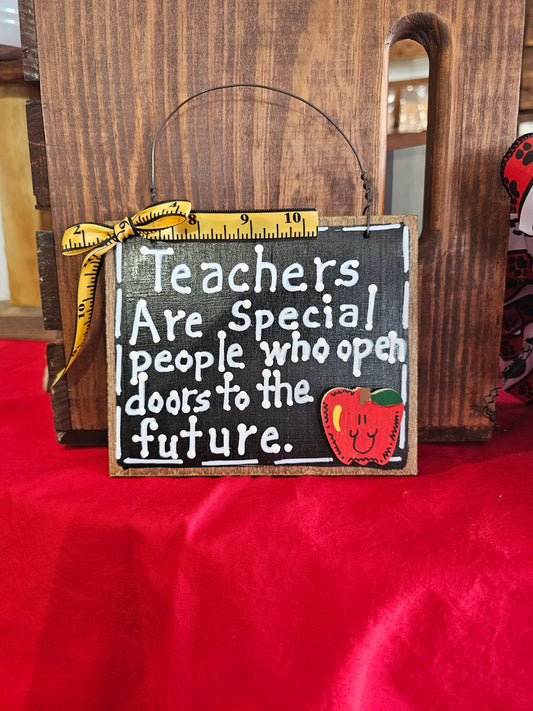 8 9 10
Teachers
Are Special
people who open
doors to the
future.